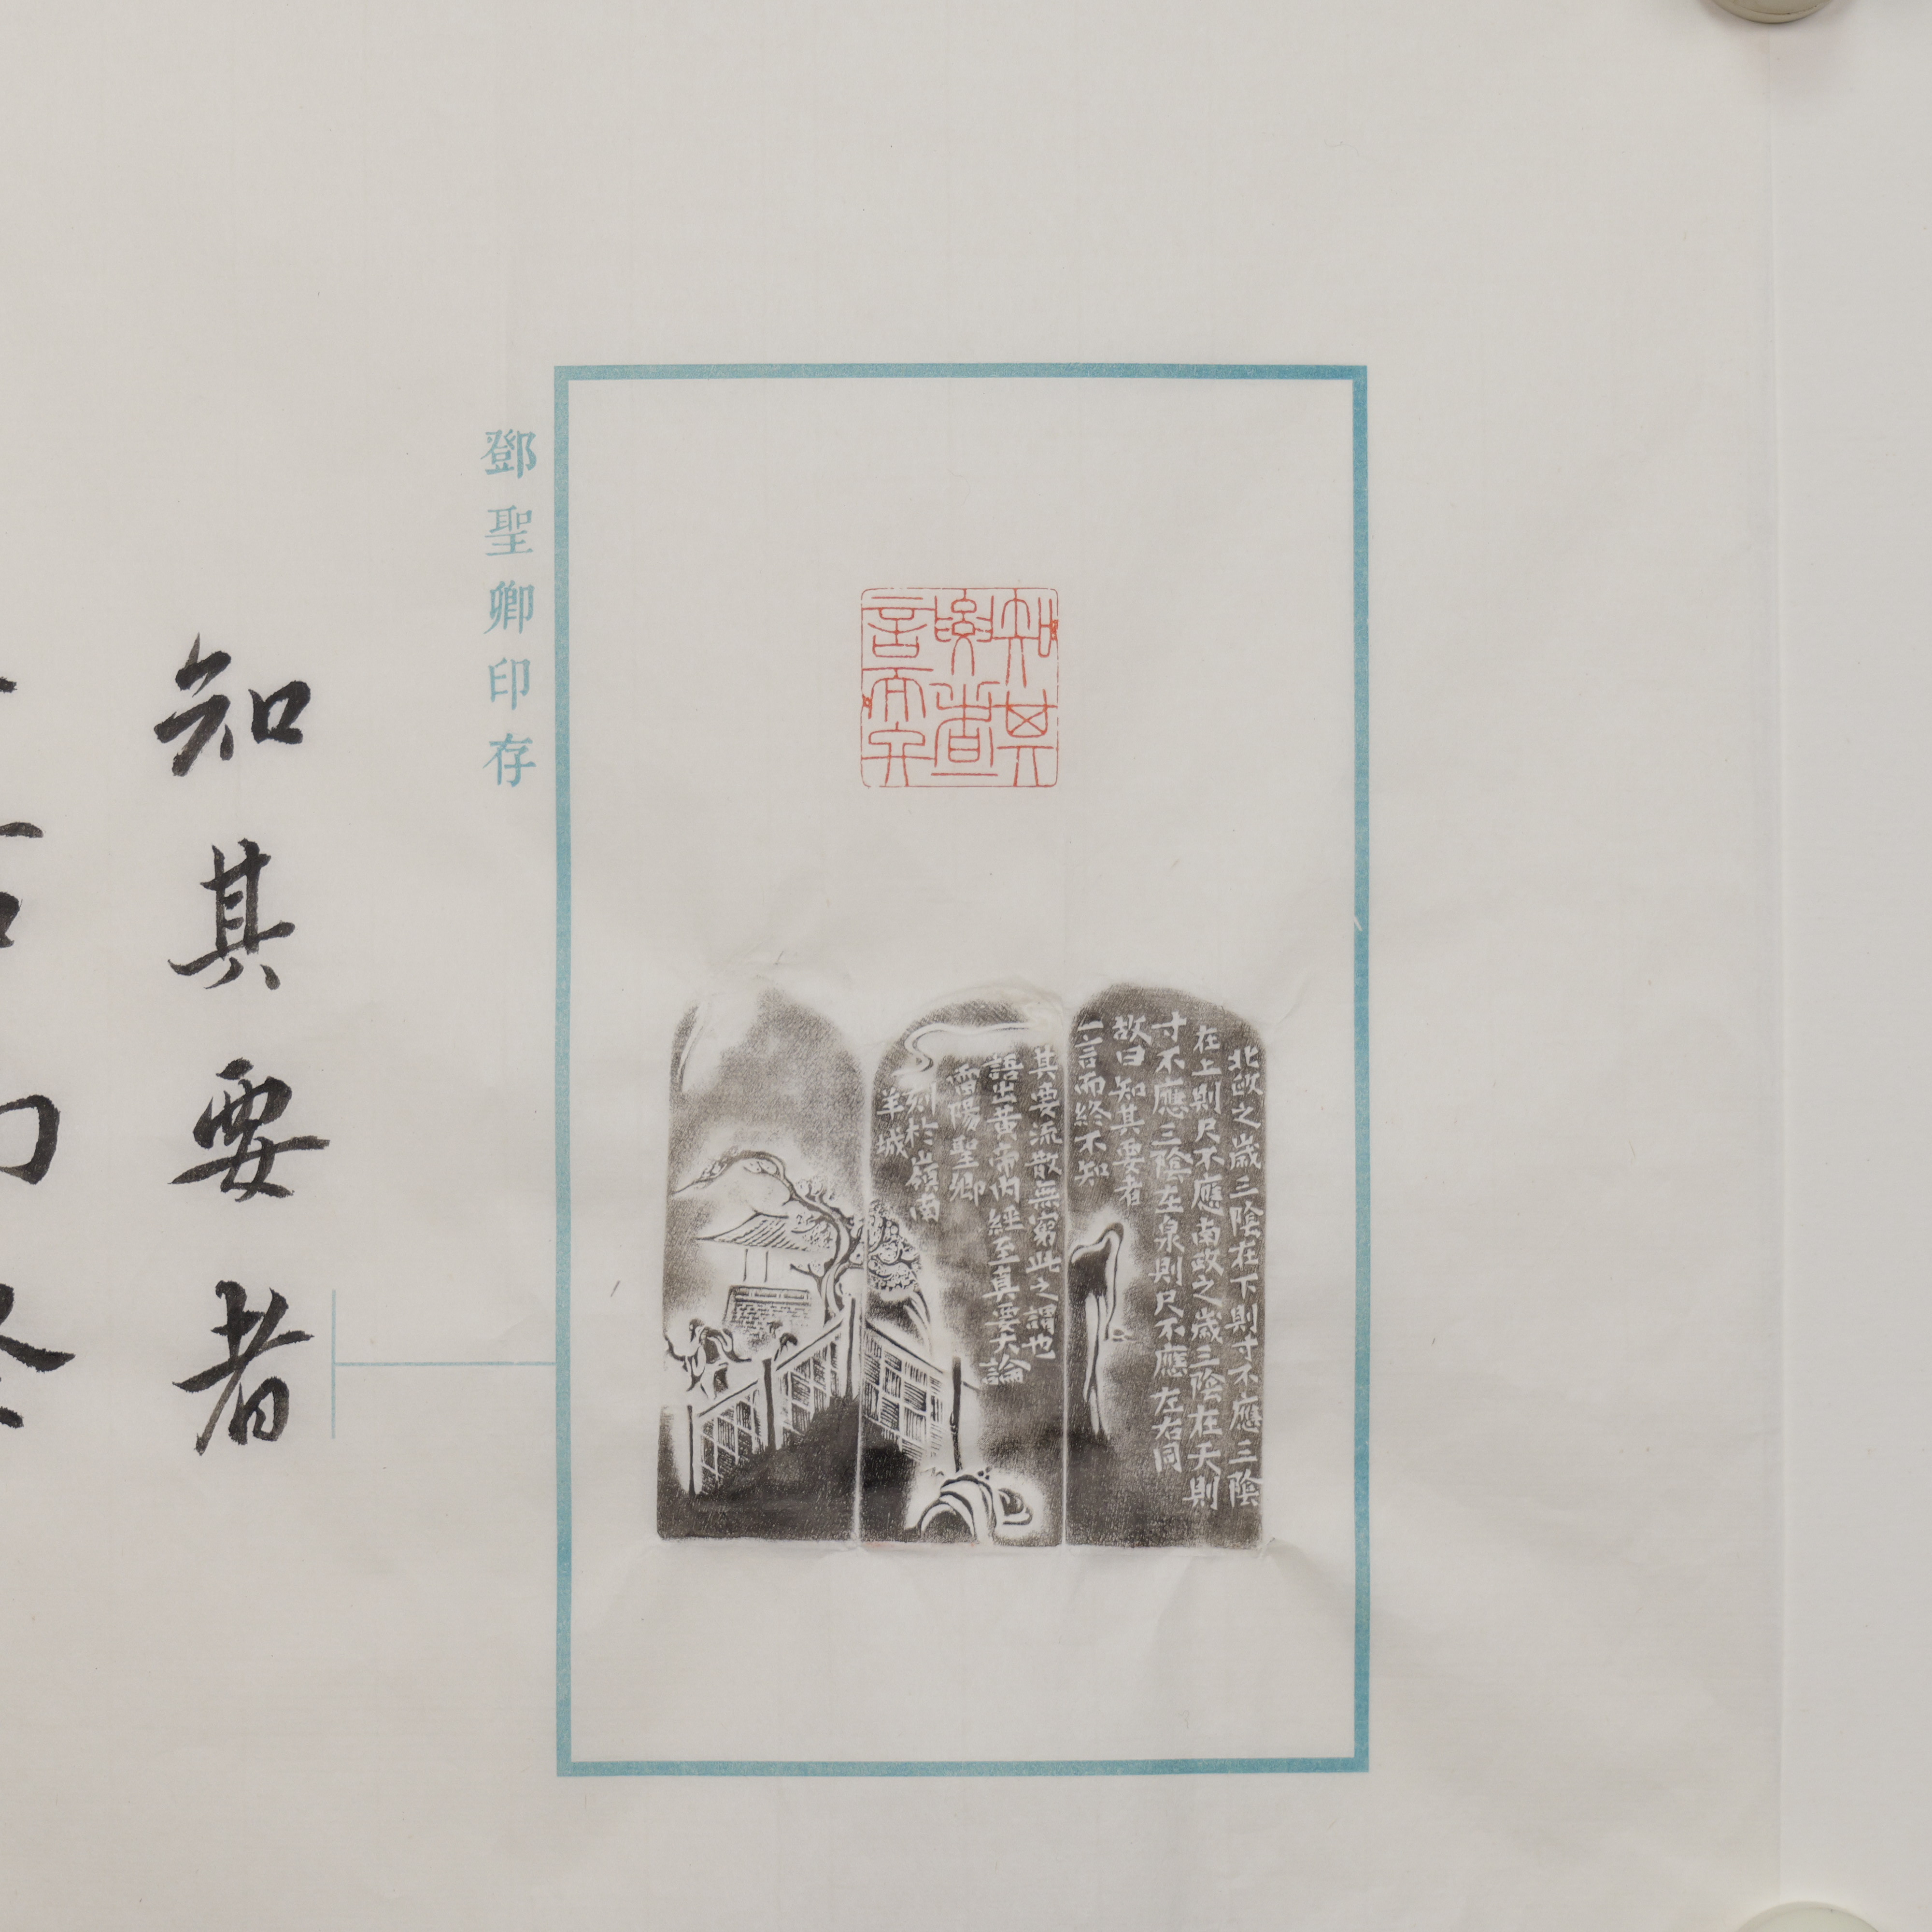 知其
要者一
言而終
北政之歲三陰在下則寸不應三陰
在上則尺不應南政之歲三陰在天則
寸不應三陰在泉則尺不應左右同
故曰知其要者
一言而終不知
其要流散無窮此之謂也
語出黃帝內經至真要大論
雷陽聖卿
刻於嶺南
羊城
鄧聖卿印存
知其要者